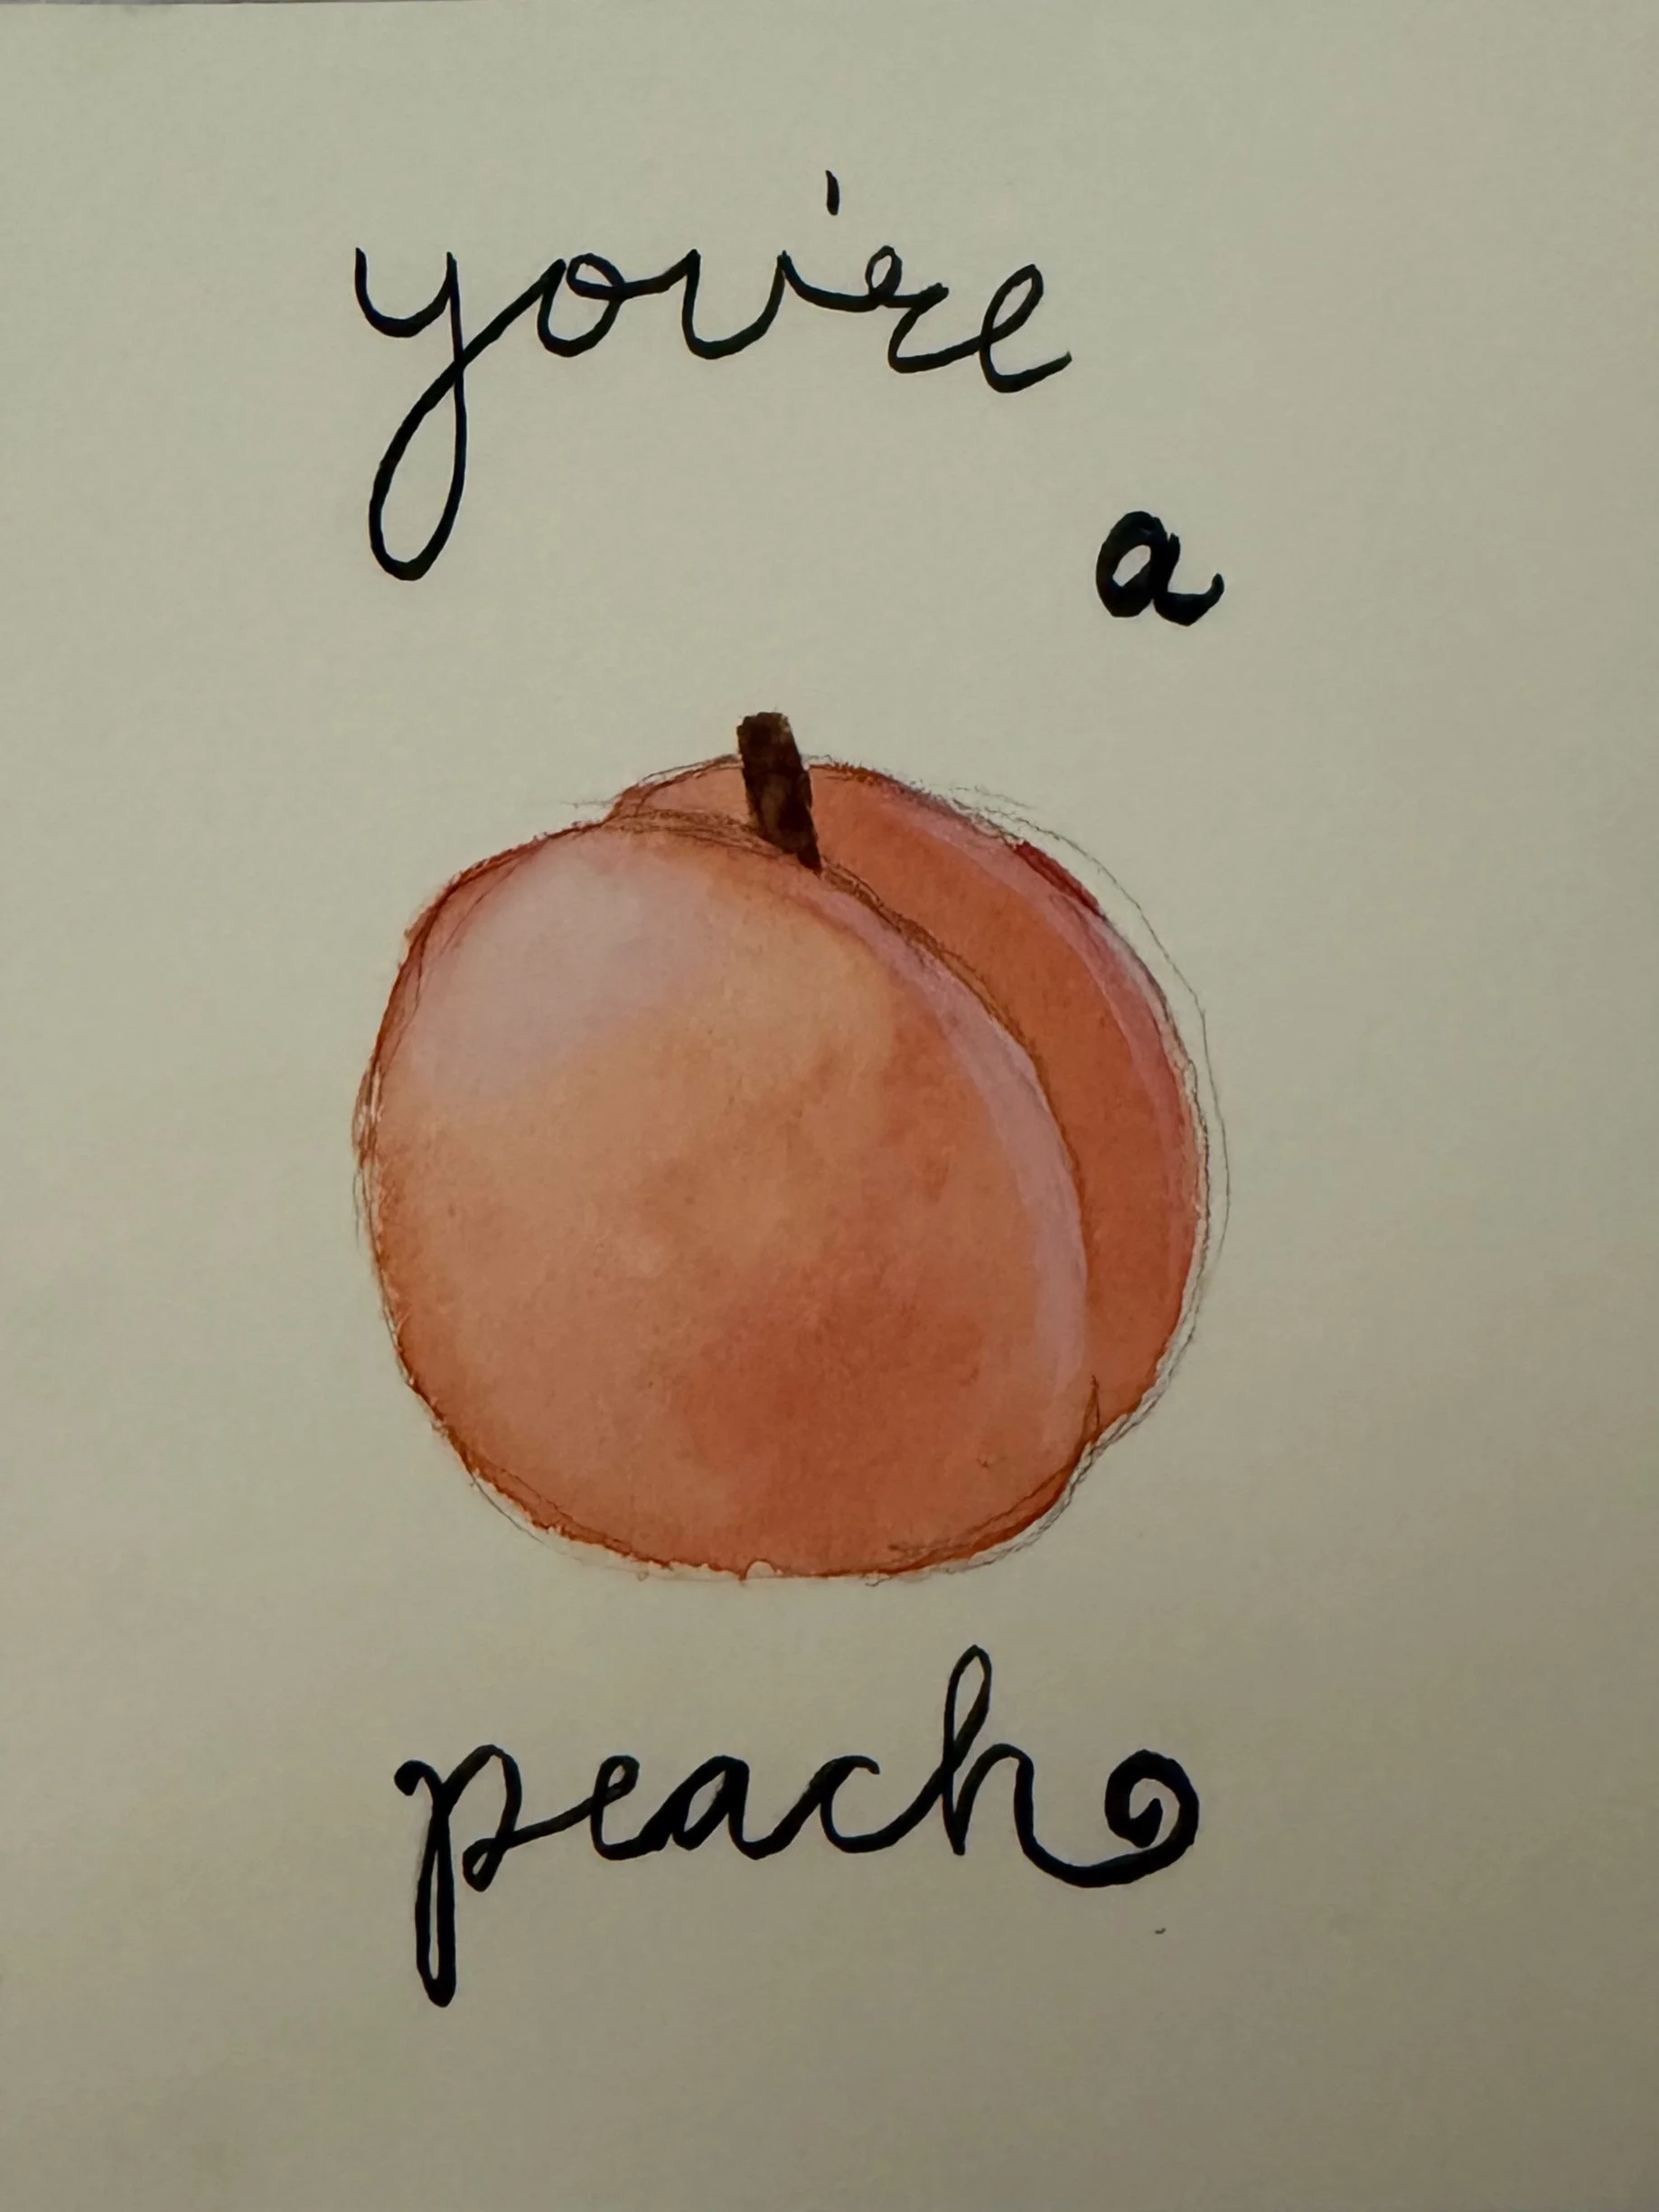 you're
a
peach